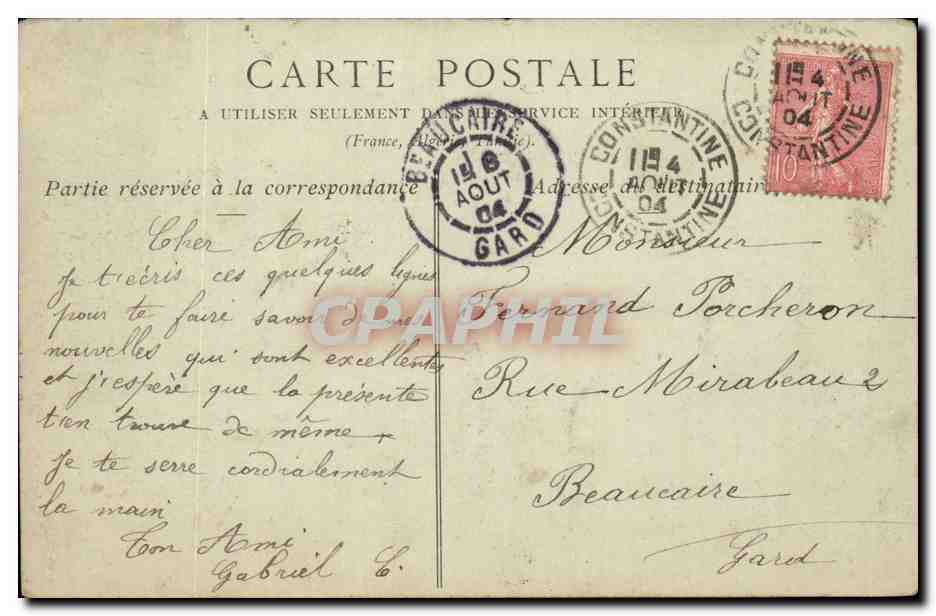 CARTE POSTALE
A UTILISER SEULEMENT DANS LE SERVICE INTÉRIEUR
(France, Algérie, Tunisie).
Partie réservée à la correspondance
Adresse du destinataire
BEAUCAIRE
8
AOUT
04
GARD
CONSTANTINE
11E 4
AOUT
04
CONSTANTINE
CONSTANTINE
11E 4
AOUT
04
CONSTANTINE
10
Cher Ami
Je t'écris ces quelques lignes
pour te faire savoir de mes
nouvelles qui sont excellentes
et j'espère que la présente
t'en trouve de même
Je te serre cordialement
la main
Ton Ami
Gabriel C.
Monsieur
Fernand Porcheron
Rue Mirabeau 2
Beaucaire
Gard
CPAPHIL